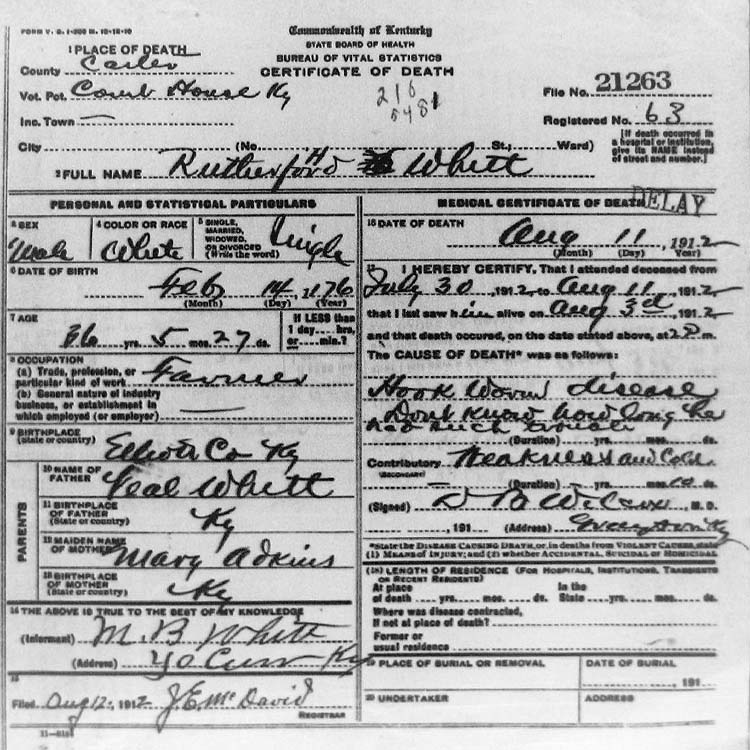 FORM V. S. 1-200 M. 10-12-10
Commonwealth of Kentucky
STATE BOARD OF HEALTH
BUREAU OF VITAL STATISTICS
CERTIFICATE OF DEATH
1 PLACE OF DEATH
County Carter
Vot. Pct. Court House Ky
216
5481
File No. 21263
Inc. Town —
Registered No. 63
City (No St.; Ward)
[If death occurred in a hospital or institution, give its NAME instead of street and number.]
2 FULL NAME Rutherford H Whitt
PERSONAL AND STATISTICAL PARTICULARS
3 SEX
Male
4 COLOR OR RACE
White
5 SINGLE, MARRIED, WIDOWED, OR DIVORCED (Write the word)
Single
6 DATE OF BIRTH
Feb 14, 176
(Month) (Day) (Year)
7 AGE
36 yrs. 5 mos. 27 ds.
If LESS than 1 day hrs. or min.?
8 OCCUPATION
(a) Trade, profession, or particular kind of work Farmer
(b) General nature of industry business, or establishment in which employed (or employer) —
9 BIRTHPLACE
(State or country)
Elliott Co Ky
PARENTS
10 NAME OF FATHER
Neal Whitt
11 BIRTHPLACE OF FATHER
(State or country)
Ky
12 MAIDEN NAME OF MOTHER
Mary Adkins
13 BIRTHPLACE OF MOTHER
(State or country)
Ky
14 THE ABOVE IS TRUE TO THE BEST OF MY KNOWLEDGE
(Informant) M. B Whitt
(Address) Yocum Ky
15
Filed Aug 12, 1912 J E McDavid
REGISTRAR
11-
MEDICAL CERTIFICATE OF DEATH
DELAY
16 DATE OF DEATH
Aug 11, 1912
(Month) (Day) Year
17 I HEREBY CERTIFY, That I attended deceased from
July 30, 1912, to Aug 11, 1912
that I last saw him alive on Aug 3rd, 1912
and that death occured, on the date stated above, at 2 m.
The CAUSE OF DEATH* was as follows:
Hook Worm disease
Dont know how long he
had such trouble
(Duration) yrs. mos. ds.
Contributory Weakness and
(SECONDARY)
(Duration) yrs. mos. 10 ds.
(Signed) M. D.
, 191 (Address)
*State the DISEASE CAUSING DEATH, or, in deaths from VIOLENT CAUSES, state
(1) MEANS OF INJURY; and (2) whether ACCIDENTAL, SUICIDAL or HOMICIDAL
(18) LENGTH OF RESIDENCE (FOR HOSPITALS, INSTITUTIONS, TRANSIENTS OR RECENT RESIDENTS)
At place of death yrs. mos. ds. In the State yrs. mos. ds.
Where was disease contracted,
If not at place of death?
Former or
usual residence
19 PLACE OF BURIAL OR REMOVAL
DATE OF BURIAL
, 191
20 UNDERTAKER
ADDRESS